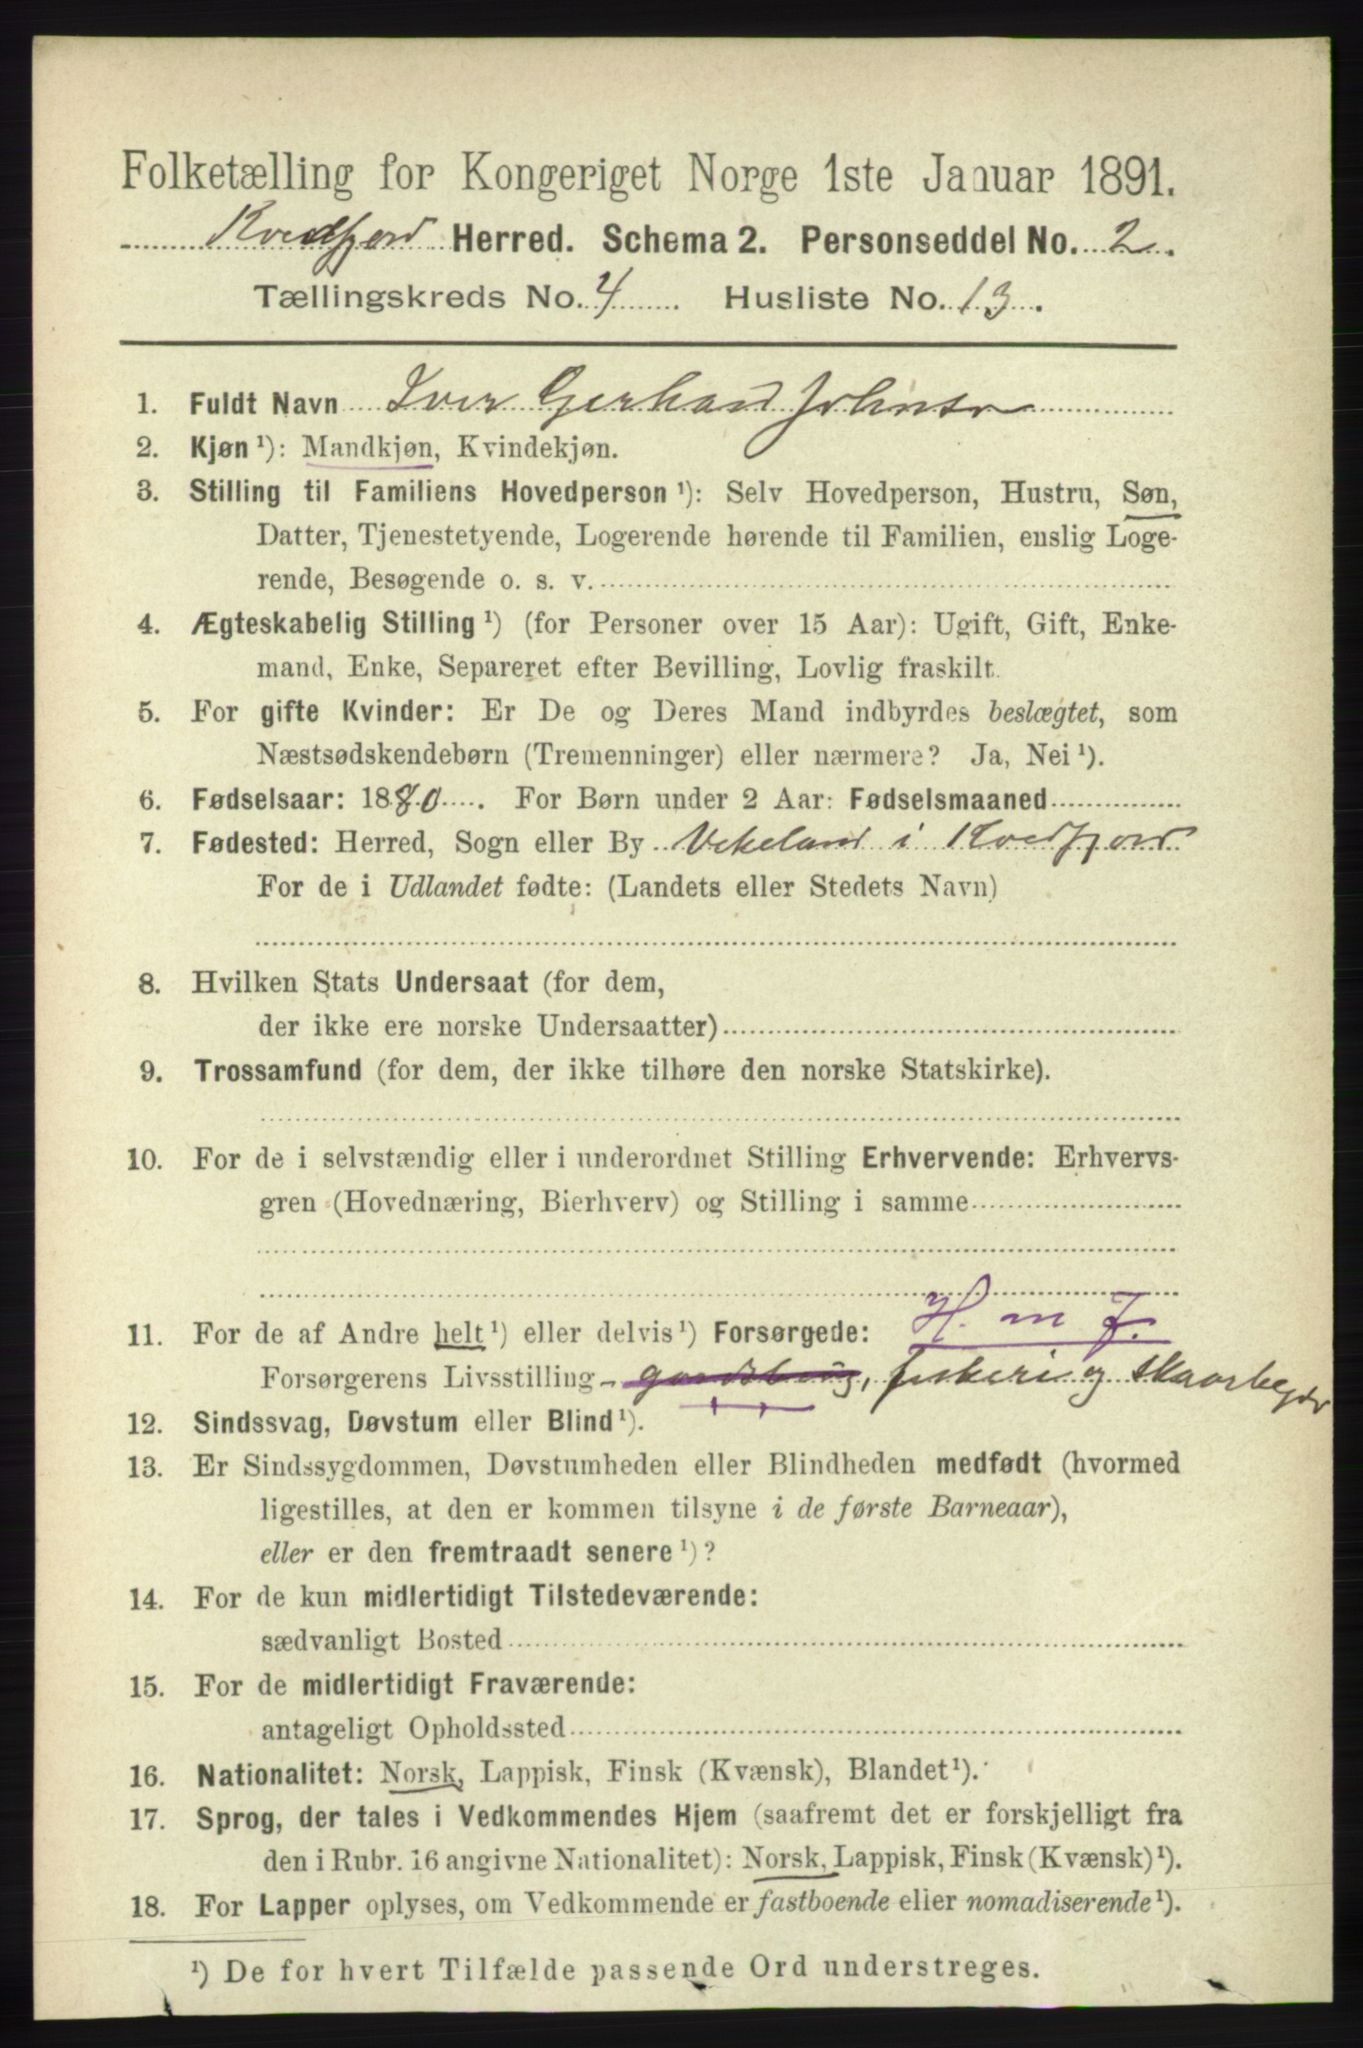 Folketælling for Kongeriget Norge 1ste Januar 1891.
Kvedfjord Herred. Schema 2. Personseddel No. 2.
Tællingskreds No. 4 Husliste No. 13.
1. Fuldt Navn Iver Gerhard Johnsen
2. Kjøn ¹): Mandkjøn, Kvindekjøn.
3. Stilling til Familiens Hovedperson ¹): Selv Hovedperson, Hustru, Søn,
Datter, Tjenestetyende, Logerende hørende til Familien, enslig Loge-
rende, Besøgende o. s. v.
4. Ægteskabelig Stilling ¹) (for Personer over 15 Aar): Ugift, Gift, Enke-
mand, Enke, Separeret efter Bevilling, Lovlig fraskilt.
5. For gifte Kvinder: Er De og Deres Mand indbyrdes beslægtet, som
Næstsødskendebørn (Tremenninger) eller nærmere? Ja, Nei ¹).
6. Fødselsaar: 1880. For Børn under 2 Aar: Fødselsmaaned
7. Fødested: Herred, Sogn eller By Vikeland i Kvedfjord
For de i Udlandet fødte: (Landets eller Stedets Navn)
8. Hvilken Stats Undersaat (for dem,
der ikke ere norske Undersaatter)
9. Trossamfund (for dem, der ikke tilhøre den norske Statskirke).
10. For de i selvstændig eller i underordnet Stilling Erhvervende: Erhvervs-
gren (Hovednæring, Bierhverv) og Stilling i samme
H. m J.
11. For de af Andre helt ¹) eller delvis ¹) Forsørgede:
Forsørgerens Livsstilling gaardsbrug, fiskeri og
12. Sindssvag, Døvstum eller Blind ¹).
13. Er Sindssygdommen, Døvstumheden eller Blindheden medfødt (hvormed
ligestilles, at den er kommen tilsyne i de første Barneaar),
eller er den fremtraadt senere ¹)?
14. For de kun midlertidigt Tilstedeværende:
sædvanligt Bosted
15. For de midlertidigt Fraværende:
antageligt Opholdssted
16. Nationalitet: Norsk, Lappisk, Finsk (Kvænsk), Blandet ¹).
17. Sprog, der tales i Vedkommendes Hjem (saafremt det er forskjelligt fra
den i Rubr. 16 angivne Nationalitet): Norsk, Lappisk, Finsk (Kvænsk) ¹).
18. For Lapper oplyses, om Vedkommende er fastboende eller nomadiserende ¹).
¹) De for hvert Tilfælde passende Ord understreges.